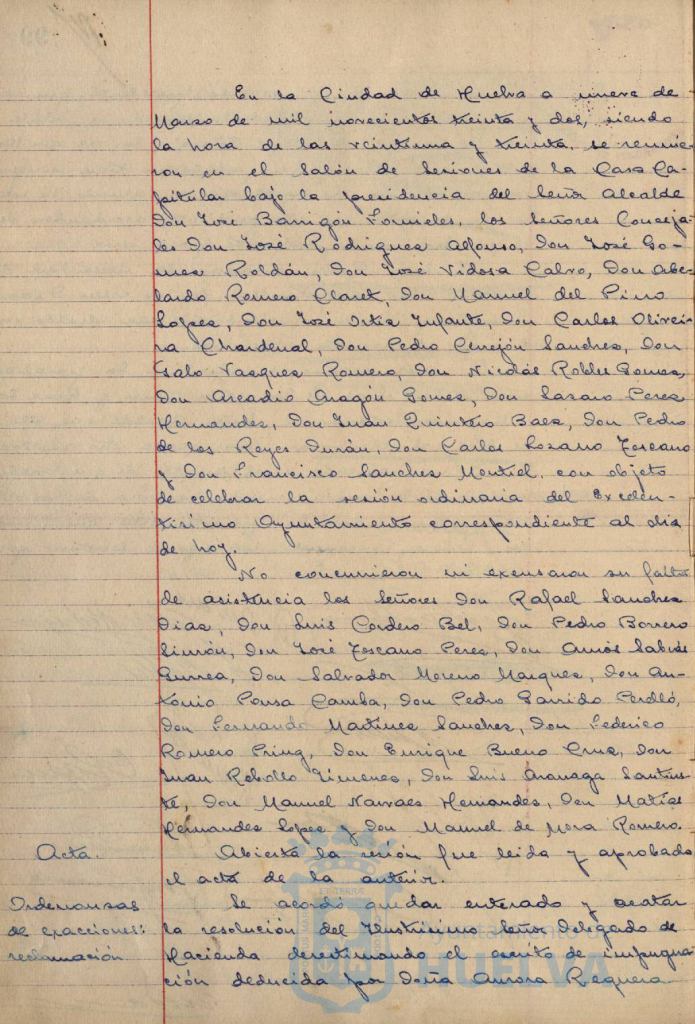 En la Ciudad de Huelva a nueve de
Marzo de mil novecientos treinta y dos, siendo
la hora de las veintiuna y treinta, se reunie-
ron en el Salón de Sesiones de la Casa Ca-
pitular bajo la presidencia del Señor Alcalde
Don José Barrigón Fornieles, los Señores Conceja-
les Don José Rodriguez Alfonso, Don José Go-
mez Roldán, Don José Vidosa Calvo, Don Abe-
lardo Romero Claret, Don Manuel del Pino
Lopez, Don José Ortiz Infante, Don Carlos Olivei-
ra Chardenal, Don Pedro Cerrejón Sanchez, Don
Galo Vazquez Romero, Don Nicolás Robles Gomez,
Don Arcadio Aragón Gomez, Don Lazaro Perez
Hernandez, Don Juan Quintero Baez, Don Pedro
de los Reyes Durán, Don Carlos Lozano Toscano
y Don Francisco Sanchez Montiel, con objeto
de celebrar la sesión ordinaria del Excelen-
tisimo Ayuntamiento correspondiente al dia
de hoy.
No concurrieron ni excusaron su falta
de asistencia los Señores Don Rafael Sanchez
Diaz, Don Luis Cordero Bel, Don Pedro Borrero
Limón, Don José Toscano Perez, Don Amós Sabrás
Gurrea, Don Salvador Moreno Marquez, Don An-
tonio Pousa Camba, Don Pedro Garrido Perelló,
Don Fernando Martinez Sanchez, Don Federico
Romero Pring, Don Enrique Bueno Cruz, Don
Juan Rebollo Jimenez, Don Luis Aranaga Santius-
te, Don Manuel Narvaez Hernandez, Don Matias
Hernandez Lopez y Don Manuel de Mora Romero.
Acta. Abierta la sesión fue leida y aprobado
el acta de la anterior.
Ordenanzas Se acordó quedar enterado y acatar
de exacciones: la resolución del Ilustrisimo Señor Delegado de
reclamación Hacienda desestimando el escrito de impugna-
ción deducida por Doña Aurora Requera
Ayuntamiento de
HUELVA